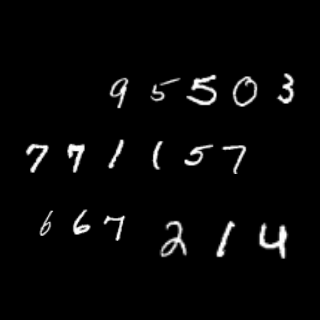 95503
771157
667214